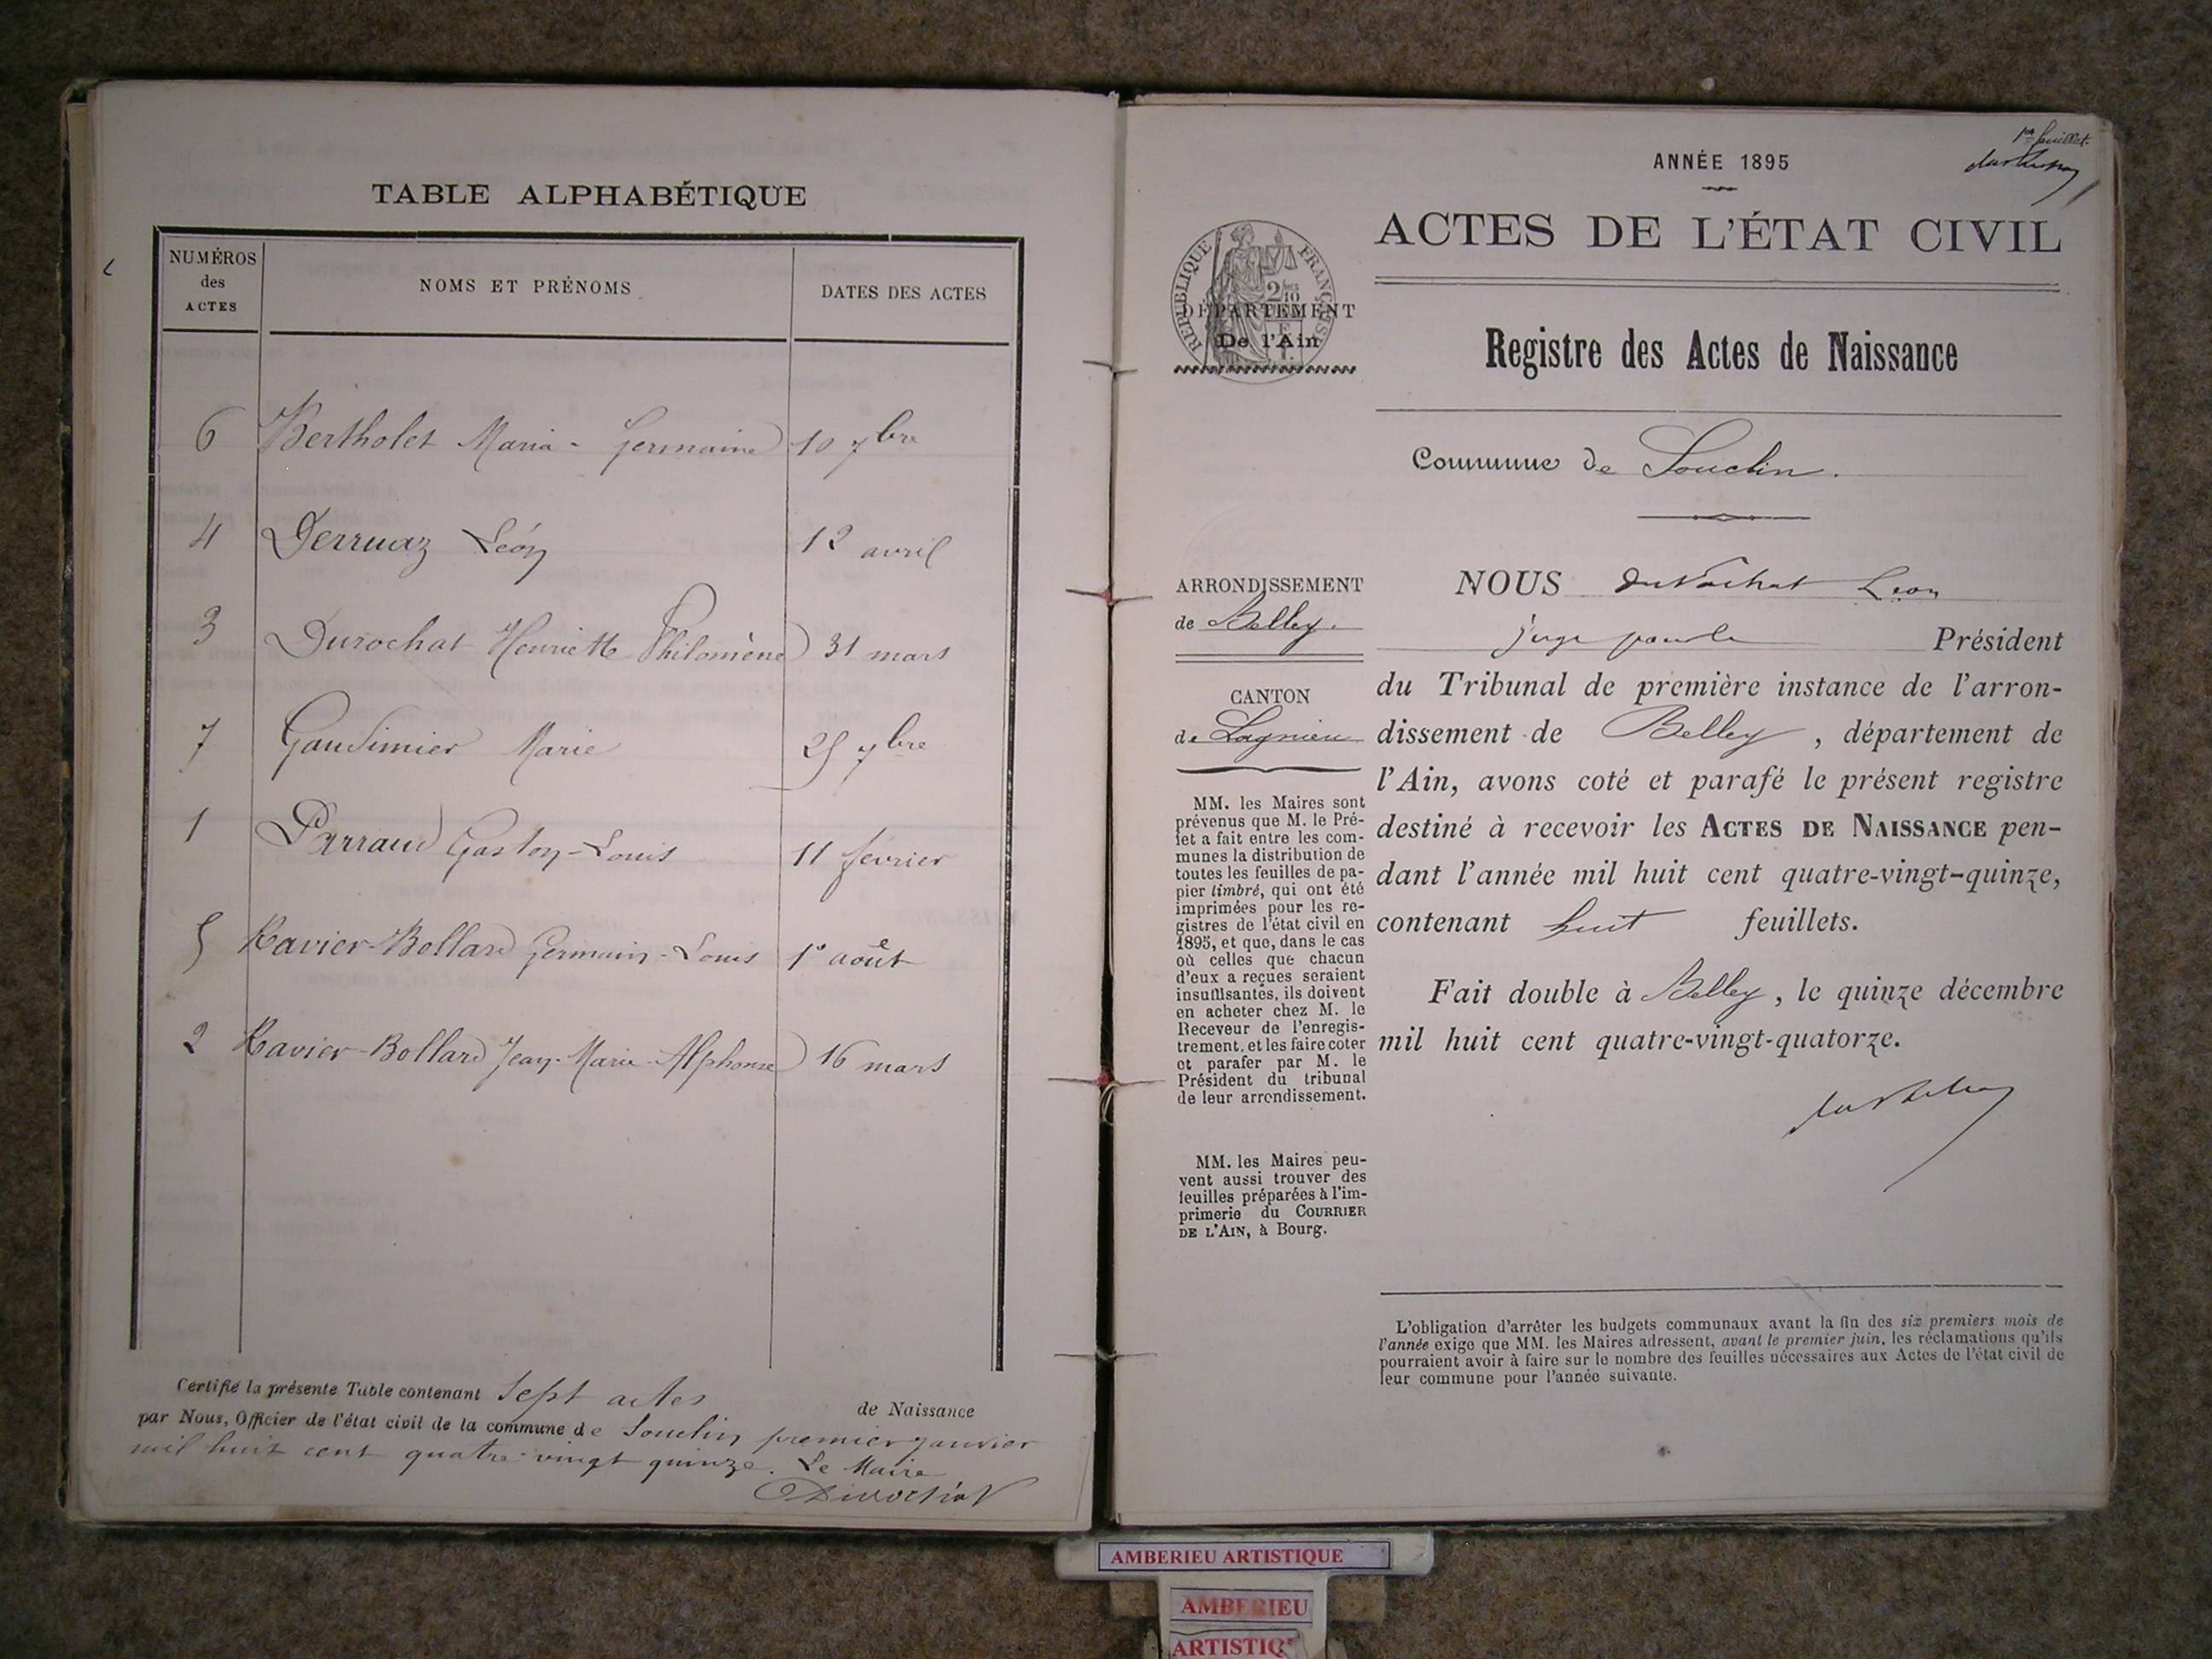 TABLE ALPHABÉTIQUE
NUMÉROS
des
ACTES
NOMS ET PRÉNOMS
DATES DES ACTES
6 Bertholet Maria-Germaine 10 7bre
4 Derruaz Léon 12 avril
3 Durochat Henriette Philomène 31 mars
7 Gaudimier Marie 25 7bre
1 Parraud Gaston-Louis 11 février
5 Ravier-Bollard Germain-Louis 1e août
2 Ravier-Bollard Jean-Marie-Alphonse 16 mars
Certifié la présente Table contenant Sept actes de Naissance
par Nous, Officier de l'état civil de la commune de Souclin premier janvier
mil huit cent quatre-vingt quinze. Le Maire
Durochat
1er feuillet.
ANNÉE 1895
ACTES DE L'ÉTAT CIVIL
REPUBLIQUE FRANÇAISE
DÉPARTEMENT
De l'Ain
Registre des Actes de Naissance
Commune de Souclin.
ARRONDISSEMENT
de Belley.
CANTON
de Lagnieu
MM. les Maires sont
prévenus que M. le Pré-
fet a fait entre les com-
munes la distribution de
toutes les feuilles de pa-
pier timbré, qui ont été
imprimées pour les re-
gistres de l'état civil en
1895, et que, dans le cas
où celles que chacun
d'eux a reçues seraient
insuffisantes, ils doivent
en acheter chez M. le
Receveur de l'enregis-
trement, et les faire coter
et parafer par M. le
Président du tribunal
de leur arrondissement.
MM. les Maires peu-
vent aussi trouver des
feuilles préparées à l'im-
primerie du COURRIER
DE L'AIN, à Bourg.
NOUS Léon
juge pour le Président
du Tribunal de première instance de l'arron-
dissement de Belley, département de
l'Ain, avons coté et parafé le présent registre
destiné à recevoir les ACTES DE NAISSANCE pen-
dant l'année mil huit cent quatre-vingt-quinze,
contenant huit feuillets.
Fait double à Belley, le quinze décembre
mil huit cent quatre-vingt-quatorze.
L'obligation d'arrêter les budgets communaux avant la fin des six premiers mois de
l'année exige que MM. les Maires adressent, avant le premier juin, les réclamations qu'ils
pourraient avoir à faire sur le nombre des feuilles nécessaires aux Actes de l'état civil de
leur commune pour l'année suivante.
AMBERIEU ARTISTIQUE
AMBERIEU
ARTISTIQ